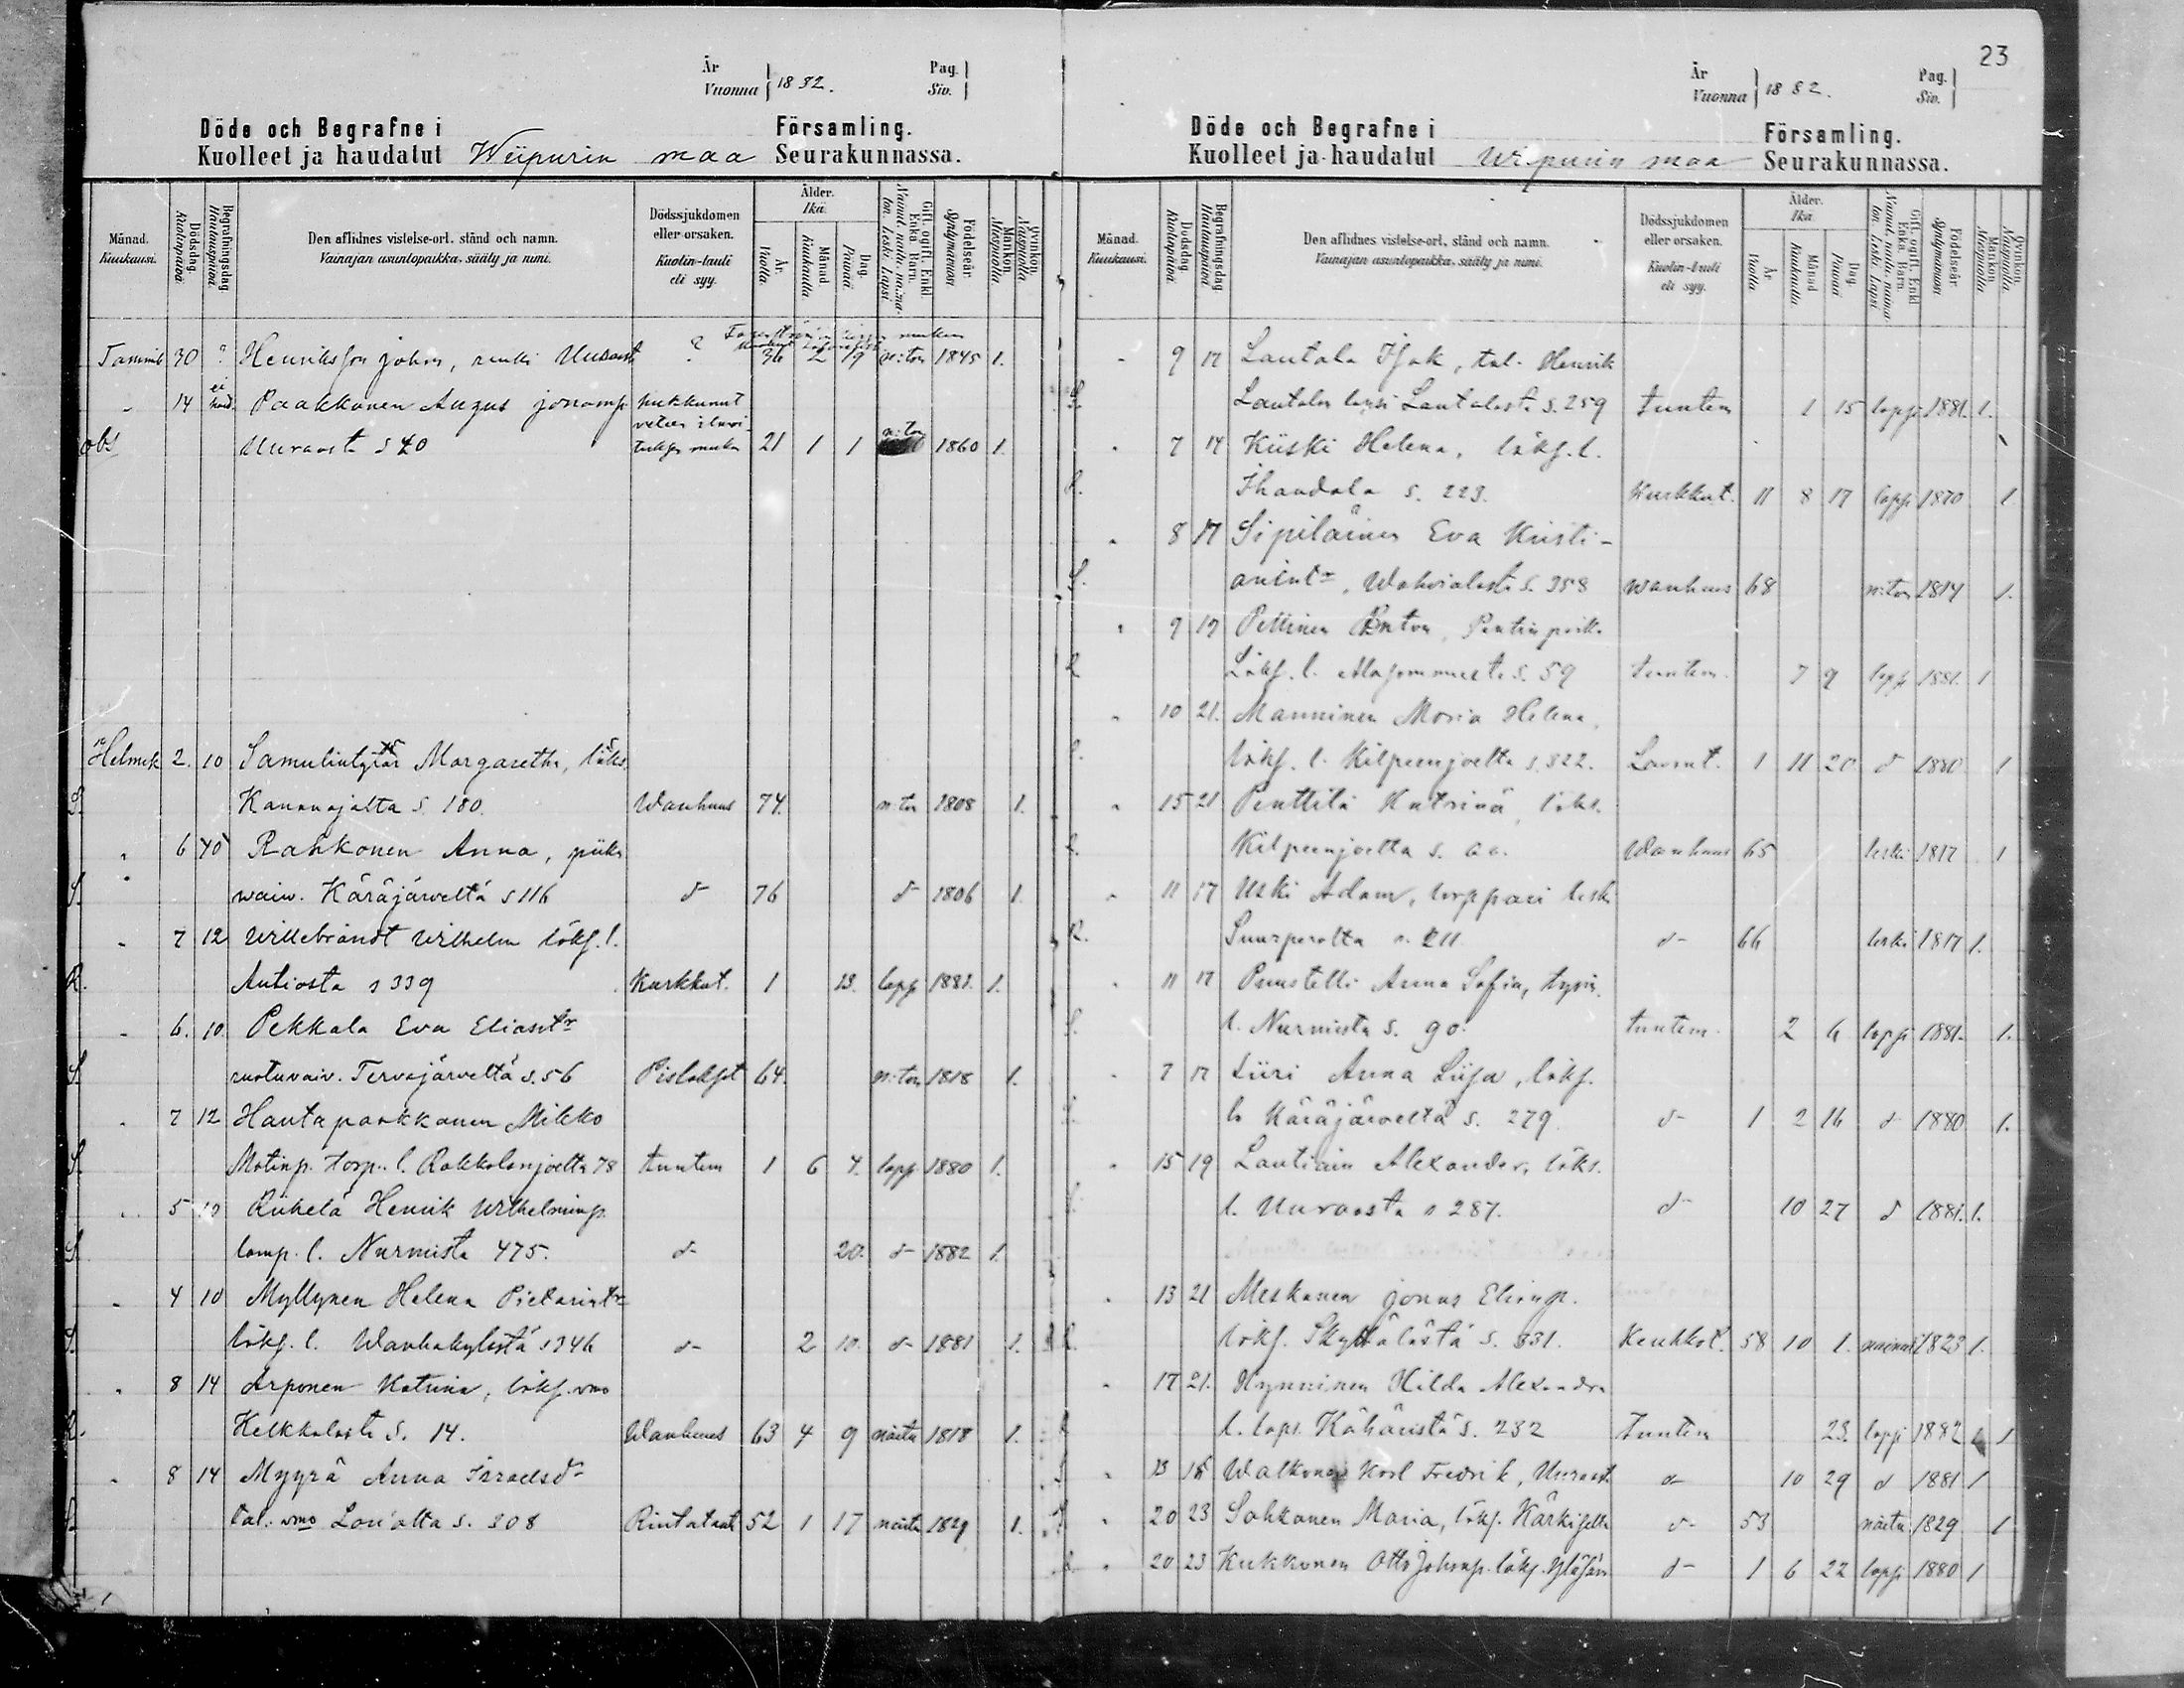 23
År
Vuonna 1882.
Pag.
Siv.
Döde och Begrafne i Församling.
Kuolleet ja haudatut Wiipurin maa Seurakunnassa.
Månad. Kuukausi.
Dödsdag. Kuolinpäivä.
Begrafningsdag Hautauspäivä
Den aflidnes vistelse-orl. stånd och namn.
Vainajan asuntopaikka. sääty ja nimi.
Dödssjukdomen eller orsaken.
Kuolin-tauti eli syy.
Ålder. Ikä.
År. Vuotta.
Månad Kuukautta
Dag. Päivää.
Gift, ogift. Enkl. Enka. Barn.
Födelseår. Syntymävuosi
Mankön. Miespuolia
Qvinkön. Vaispuolia.
Tammik 30 ? Henriksson Johan, renki ? 36 2 19 n:ton 1845 1.
14 ei haud. Paakkonen Augus hukkunut
veteen
obs Uuraasta s 40 21 1 1 n:ton 1860 1.
Helmik 2. 10 Samulintytär Margaretha, löks.
S. Kananojalta s. 180. Wanhuus 74. n:ton 1808 1.
6 10 Rahkonen Anna, piika
S. waiw. Käräjärveltä s 116 d- 76 d- 1806 1.
7 12 Willebrandt Wilhelm lökf. l.
R. Autiosta s 339 Kurkkut. 1 13. laps 1881. 1.
6. 10. Pekkala Eva Eliastr
S. ruotuvaiv. Tervajärveltä s. 56 Pistokset 64. n:ton 1818 1.
7 12 Hautaparkkanen Mikko
S. Matinp. torp. l. Rakkolanjoelta 78 tuntem 1 6 4. laps 1880 1.
5 10 Riihelä Henrik Wilhelminp.
S. lamp. l. Nurmista 475. d- 20. d- 1882 1.
4 10 Myllynen Helena Pietarintr
S. lökf. l. Wanhakylästä s 346 d- 2 10. d- 1881 1.
8 14 Arponen Katrina, lökf. wmo
R. Kelkkalasta s. 14. Wanhuus 63 4 9 naitu 1818 1.
8 14 Myyrä Anna Israelsd-
tal. wmo s. 308 Rintataut 52 1 17 naitu 1829 1.
År
Vuonna 1882.
Pag.
Siv.
Döde och Begrafne i Församling.
Kuolleet ja haudatut Wiipurin maa Seurakunnassa.
Månad. Kuukausi.
Dödsdag. Kuolinpäivä.
Begrafningsdag Hautauspäivä
Den aflidnes vistelse-orl. stånd och namn.
Vainajan asuntopaikka. sääty ja nimi.
Dödssjukdomen eller orsaken.
Kuolin-tauti eli syy.
Ålder. Ikä.
År Vuotta
Månad Kuukautta
Dag. Päivää
Gift, ogift. Enkl. Enka. Barn.
Födelseår. Syntymävuosi
Mankön. Miespuolia
Qvinkön. Vaispuolia.
9 17 Lautala Isak, tal. Henrik
S. Lautalan lapsi Lautalasta s. 259 tuntem 1 15 laps 1881. 1.
7 14 Kiiski Helena, lökf. l.
R. Ihandala s. 223. Kurkkut. 11 8 17 laps 1870 1
8 17 Sipiläinen Eva Kristi-
S. anintr, Wahvialasta s. 358 wanhuus 68 n:ton 1814 1.
9 17 Pellinen Anton, Pentinpoika
R Lökf. l. Alasommeesta s. 59 tuntem. 7 9 laps 1881. 1
10 21. Manninen Maria Helena,
lökf. l. Kilpeenjoelta s. 322. Lavint. 1 11 20 d 1880 1
15 21 Penttilä Katrina, löks.
Kilpeenjoelta s. Wanhuus 65 leski 1817 1
11 17 Uski Adam, torppari leski
R. Suurperolta s. 211. d- 66 leski 1817 1.
11 17 Puustelli Anna Sofia,
S. l. Nurmista s. 90. tuntem. 2 6 laps 1881. 1.
7 17 Liiri Anna Liisa, lökf.
l. Käräjärveltä s. 279. d- 1 2 16 d- 1880 1.
15 19 Lautiain Alexander, löks.
l. Uuraasta s 287. d- 10 27 d 1881. 1.
13 21 Meskanen Jonas Elianp.
lökf. Skyttälästä s. 331. Keuhkot. 58 10 1. 1823 1.
17 21. Hynninen Hilda Alexandra
l. laps. Kähäristä s. 232 Tuntem 23. laps 1882 1
13 18 Walkonen Karl Fredrik, Uuraast d- 10 29 d 1881 1
20 23 Sahkanen Maria, lökf. d- 53 naitu 1829 1
20 23 Kukkonen Otto Johanp. lökf. d- 1 6 22 laps 1880 1